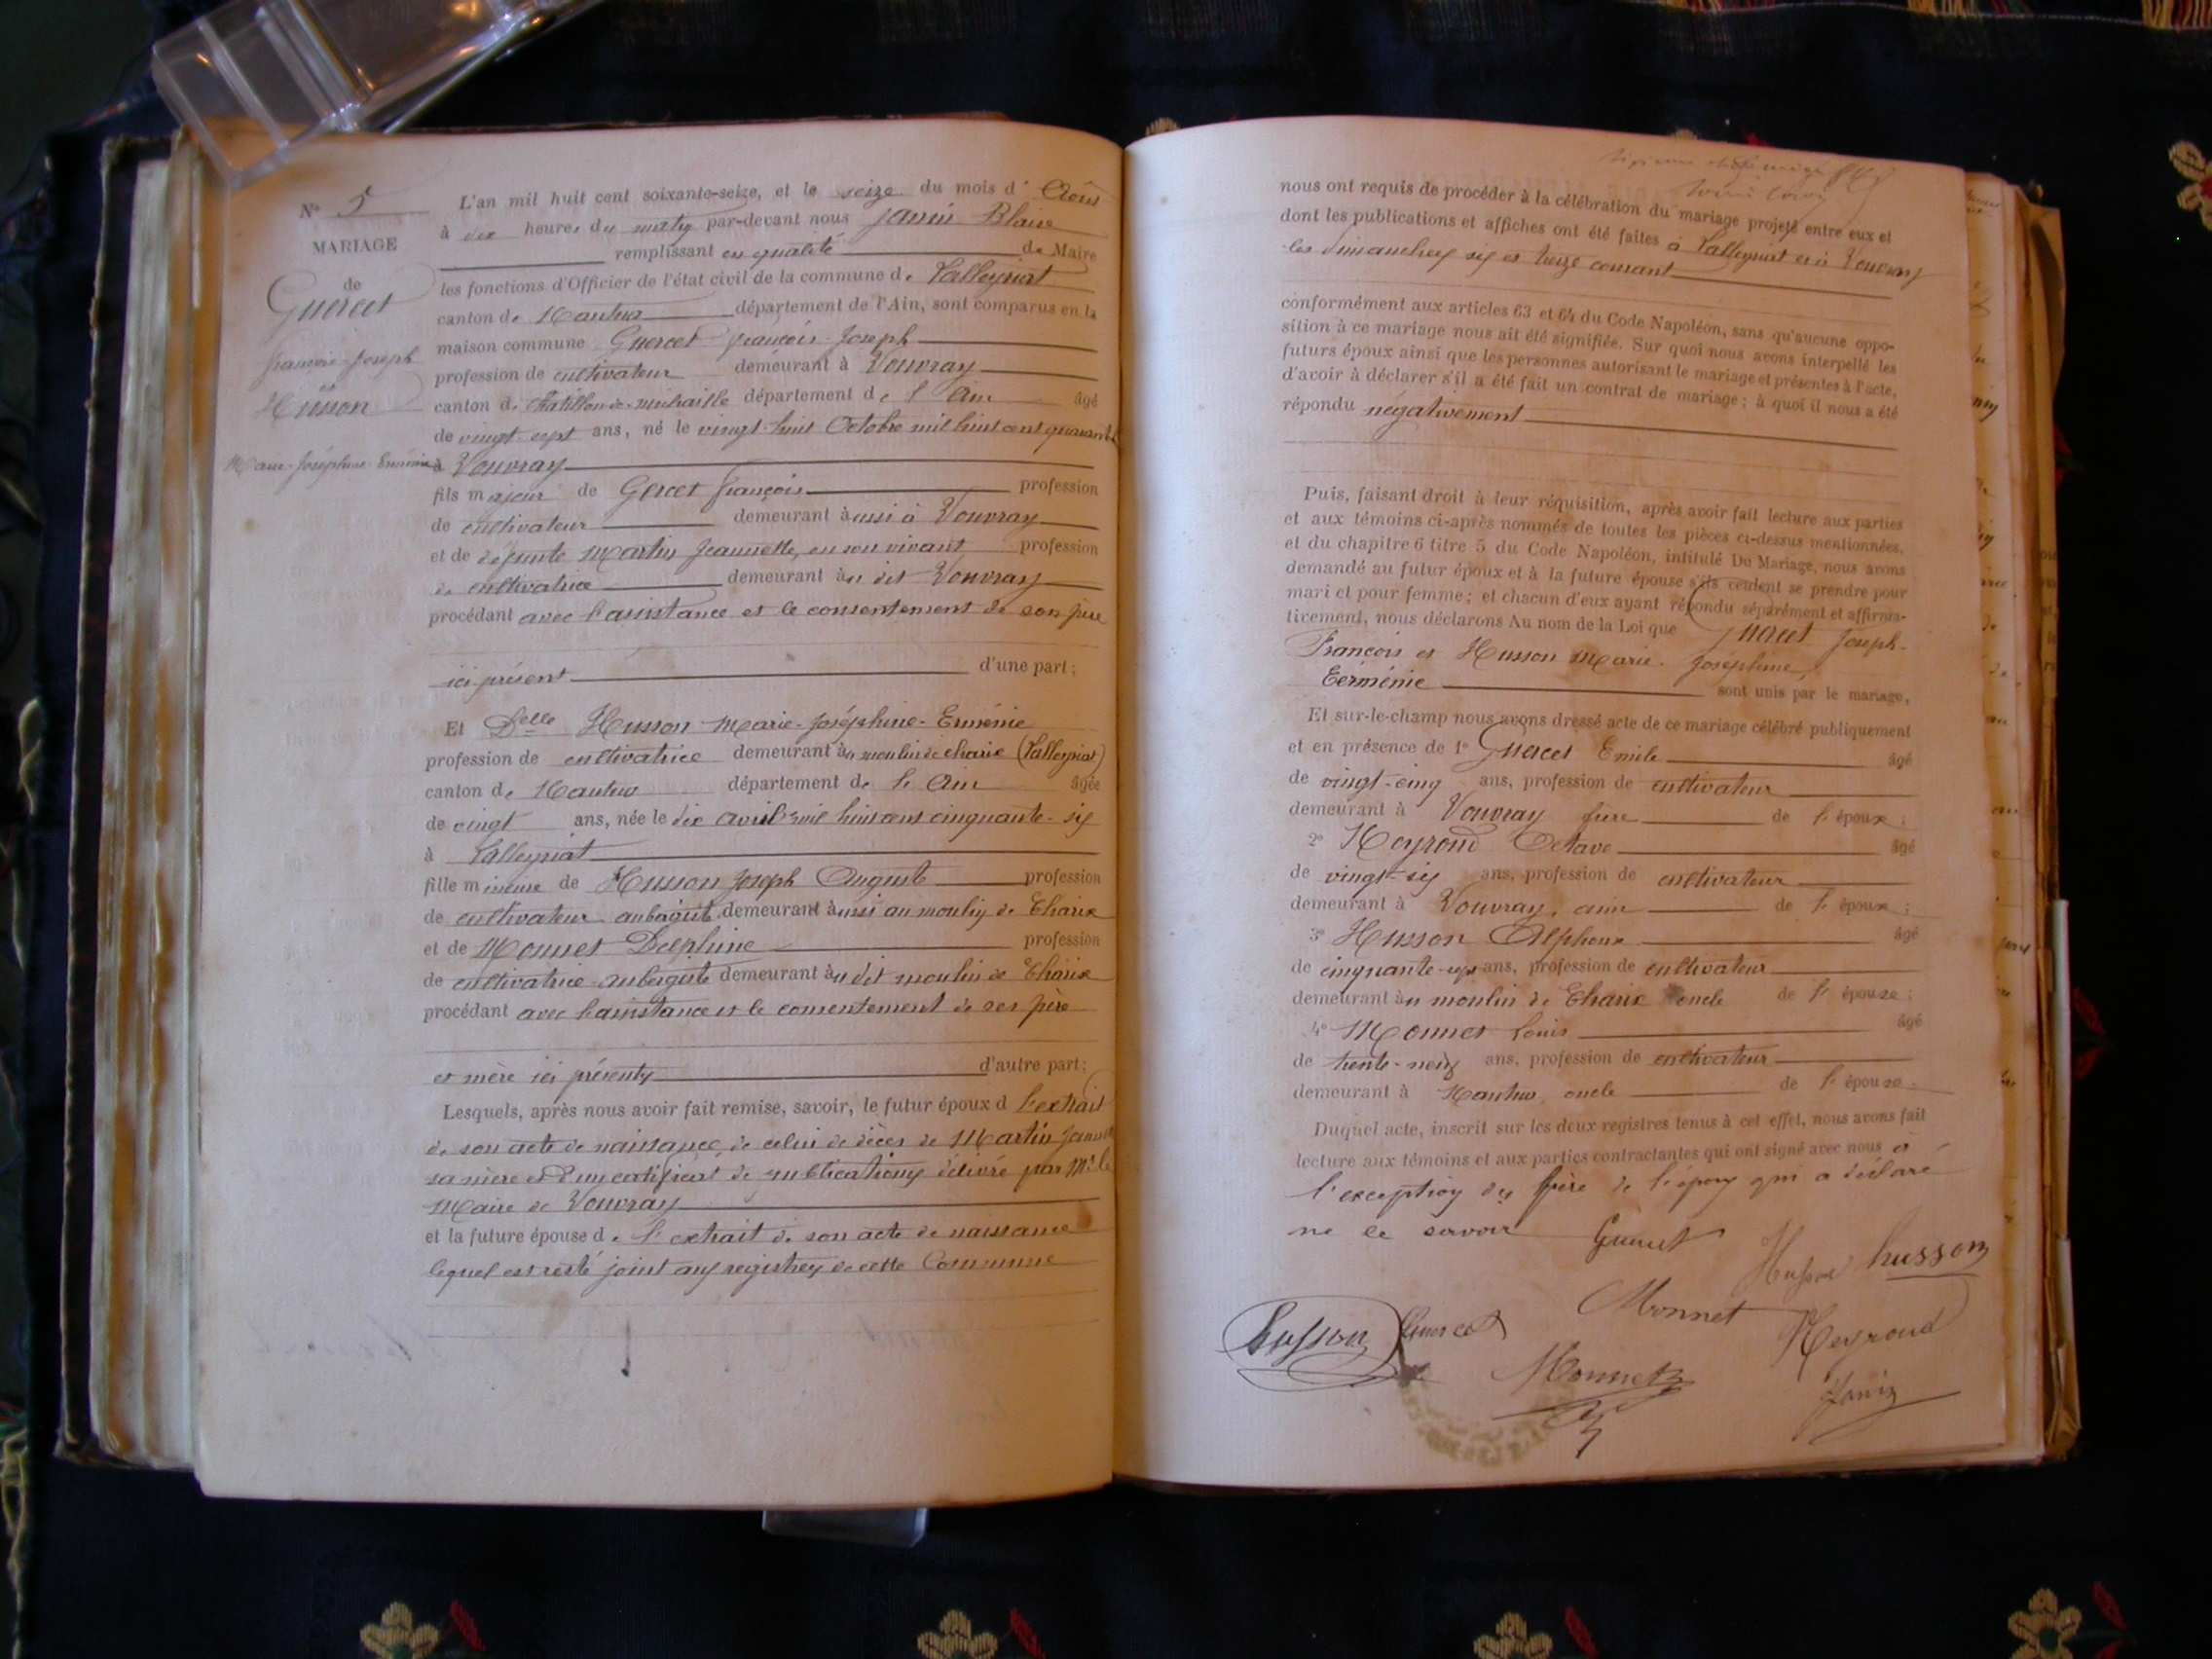 N° 5
MARIAGE
de
Guercet
françois-Joseph
et
Husson
Marie-Joséphine-Erménie
L'an mil huit cent soixante-seize, et le seize du mois d'Août
à dix heures du matin par-devant nous Janin Blaise
remplissant en qualité de Maire
les fonctions d'Officier de l'état civil de la commune de Lalleyriat
canton de Nantua département de l'Ain, sont comparus en la
maison commune Guercet françois-Joseph
profession de cultivateur demeurant à Vouvray
canton de Chatillon-de-michaille département de l'Ain âgé
de vingt-sept ans, né le vingt-huit Octobre mil huit cent quarante
à Vouvray
fils majeur de Gercet françois profession
de cultivateur demeurant aussi à Vouvray
et de défunte Martin Jeannette, en son vivant profession
de cultivatrice demeurant au dit Vouvray
procédant avec l'assistance et le consentement de son père
ici présent d'une part;
Et Delle Husson Marie-Joséphine-Erménie
profession de cultivatrice demeurant au moulin de charix (Lalleyriat)
canton de Nantua département de l'Ain âgée
de vingt ans, née le dix avril mil huit cent cinquante-six
à Lalleyriat
fille mineure de Husson Joseph Auguste profession
de cultivateur aubergiste demeurant aussi au moulin de Charix
et de Monnet Delphine profession
de cultivatrice-aubergiste demeurant au dit moulin de Charix
procédant avec l'assistance et le consentement de ses père
et mère ici présents d'autre part;
Lesquels, après nous avoir fait remise, savoir, le futur époux d l'extrait
de son acte de naissance, de celui de décès de Martin
sa mère et d'un certificat de publications délivré par Mr le
Maire de Vouvray
et la future épouse de l'extrait de son acte de naissance
lequel est resté joint aux registres de cette Commune
nous ont requis de procéder à la célébration du mariage projeté entre eux et
dont les publications et affiches ont été faites à Lalleyriat et à Vouvray
les dimanches six et treize courant
conformément aux articles 63 et 64 du Code Napoléon, sans qu'aucune oppo-
sition à ce mariage nous ait été signifiée. Sur quoi nous avons interpellé les
futurs époux ainsi que les personnes autorisant le mariage et présentes à l'acte,
d'avoir à déclarer s'il a été fait un contrat de mariage; à quoi il nous a été
répondu négativement
Puis, faisant droit à leur réquisition, après avoir fait lecture aux parties
et aux témoins ci-après nommés de toutes les pièces ci-dessus mentionnées,
et du chapitre 6 titre 5 du Code Napoléon, intitulé Du Mariage, nous avons
demandé au futur époux et à la future épouse s'ils veulent se prendre pour
mari et pour femme; et chacun d'eux ayant répondu séparément et affirma-
tivement, nous déclarons Au nom de la Loi que Guercet Joseph-
François et Husson Marie-Joséphine,
Eerménie sont unis par le mariage,
Et sur-le-champ nous avons dressé acte de ce mariage célébré publiquement
et en présence de 1° Guercet Emile âgé
de vingt-cinq ans, profession de cultivateur
demeurant à Vouvray frère de l'époux;
2° Neyroud Octave âgé
de vingt-six ans, profession de cultivateur
demeurant à Vouvray, ami de l'époux;
3° Husson Alphonse âgé
de cinquante-sept ans, profession de cultivateur
demeurant au moulin de Charix oncle de l'épouse;
4° Monnet Louis âgé
de trente-neuf ans, profession de cultivateur
demeurant à Nantua, oncle de l'épouse.
Duquel acte, inscrit sur les deux registres tenus à cet effet, nous avons fait
lecture aux témoins et aux parties contractantes qui ont signé avec nous à
l'exception du père de l'époux qui a déclaré
ne le savoir Guercet
Husson husson
Monnet
Husson Guercet Neyroud
Monnet
Janin